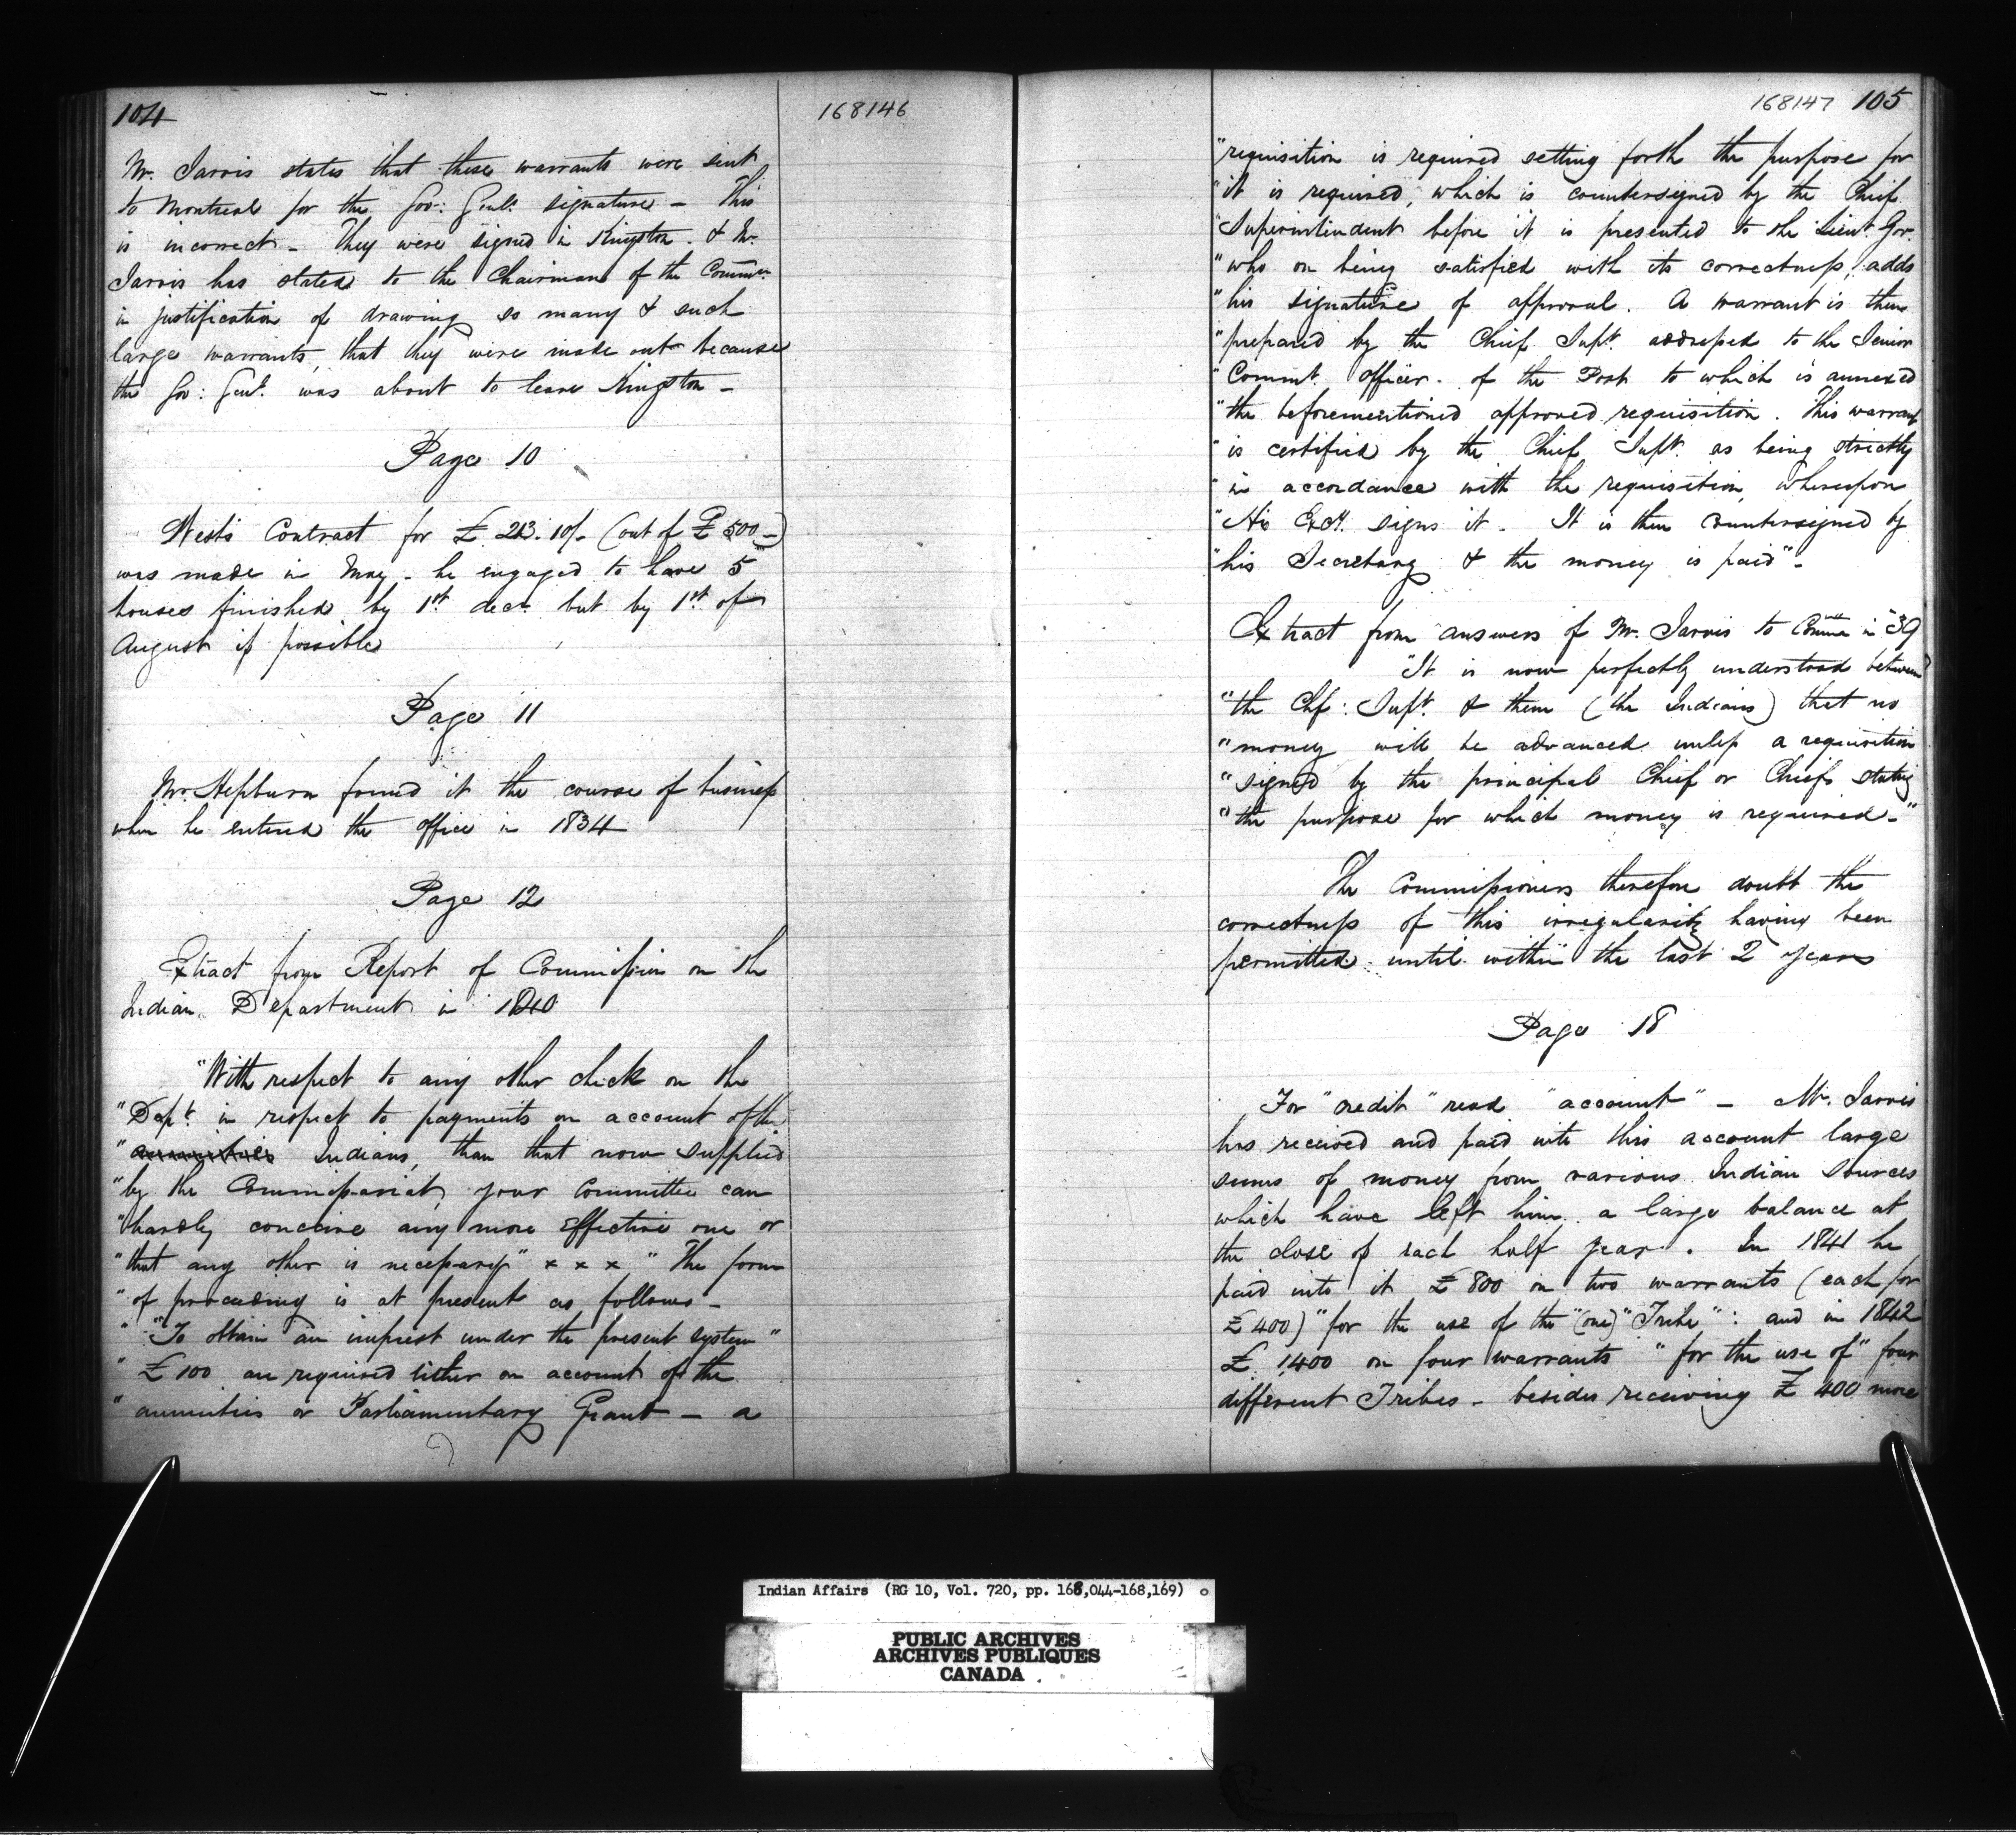 104
168146
Mr. Jarvis states that these warrants were sent
to Montreal for the Gov: Genl's signature - This
is incorrect - They were signed in Kingston. & Mr.
Jarvis has stated to the Chairman of the Commn.
in justification of drawing so many & such
large warrants, that they were made out because
the Gov: Genl. was about to leave Kingston -
Page 10
West's Contract for £ 213. 10/- (out of £ 500 -)
was made in May - he engaged to have 5
houses finished by 1st decr. but by 1st of
August if possible
Page 11
Mr. Hepburn found it the course of business
when he entered the office in 1834
Page 12
Extract from Report of Commission on the
Indian Department in 1840
"With respect to any other check on the
"Dept. in respect to payments on account of the
"annuities Indians, than that now supplied
"by the Commissariat, your Committee can
"hardly conceive any more effective one or
"that any other is necessary" x x x "The form
"of proceeding is at present as follows -
" "To obtain an imprest under the present system"
" £100 are required either on account of the
" annuities or Parliamentary Grant - a
168147 105
"requisition is required setting forth the purpose for
"it is required, which is countersigned by the Chief
"Superintendent before it is presented to the Lieut. Gov.
"who on being satisfied with its correctness, adds
"his signature of approval. A warrant is then
"prepared by the Chief Supt. addressed to the Senior
"Commt. officer - of the Post to which is annexed
"the beforementioned approved requisition. This warrant
"is certified by the Chief Supt. as being strictly
"in accordance with the requisition, whereupon
"His Excy. signs it - It is then countersigned by
"his Secretary & the money is paid" -
Extract from answers of Mr. Jarvis to Comm in 39
"It is now perfectly understood between
"the Chf: Supt. & them (the Indians) that no
"money will be advanced unless a requisition
"signed by the principal Chief or Chiefs stating
"the purpose for which money is required -"
The Commissioners therefore doubt the
correctness of this irregularity having been
permitted until within the last 2 years
Page 18
For "credit" read "account" - Mr. Jarvis
has received and paid into this account large
sums of money from various Indian sources
which have left him a large balance at
the close of each half year. In 1841 he
paid into it £800 on two warrants (each for
£400) "for the use of the" (one) "Tribe": and in 1842
£ 1,400 on four warrants "for the use of" four
different Tribes - besides receiving £ 400 more
Indian Affairs (RG 10, Vol. 720, pp. 168,044-168,169)
PUBLIC ARCHIVES
ARCHIVES PUBLIQUES
CANADA